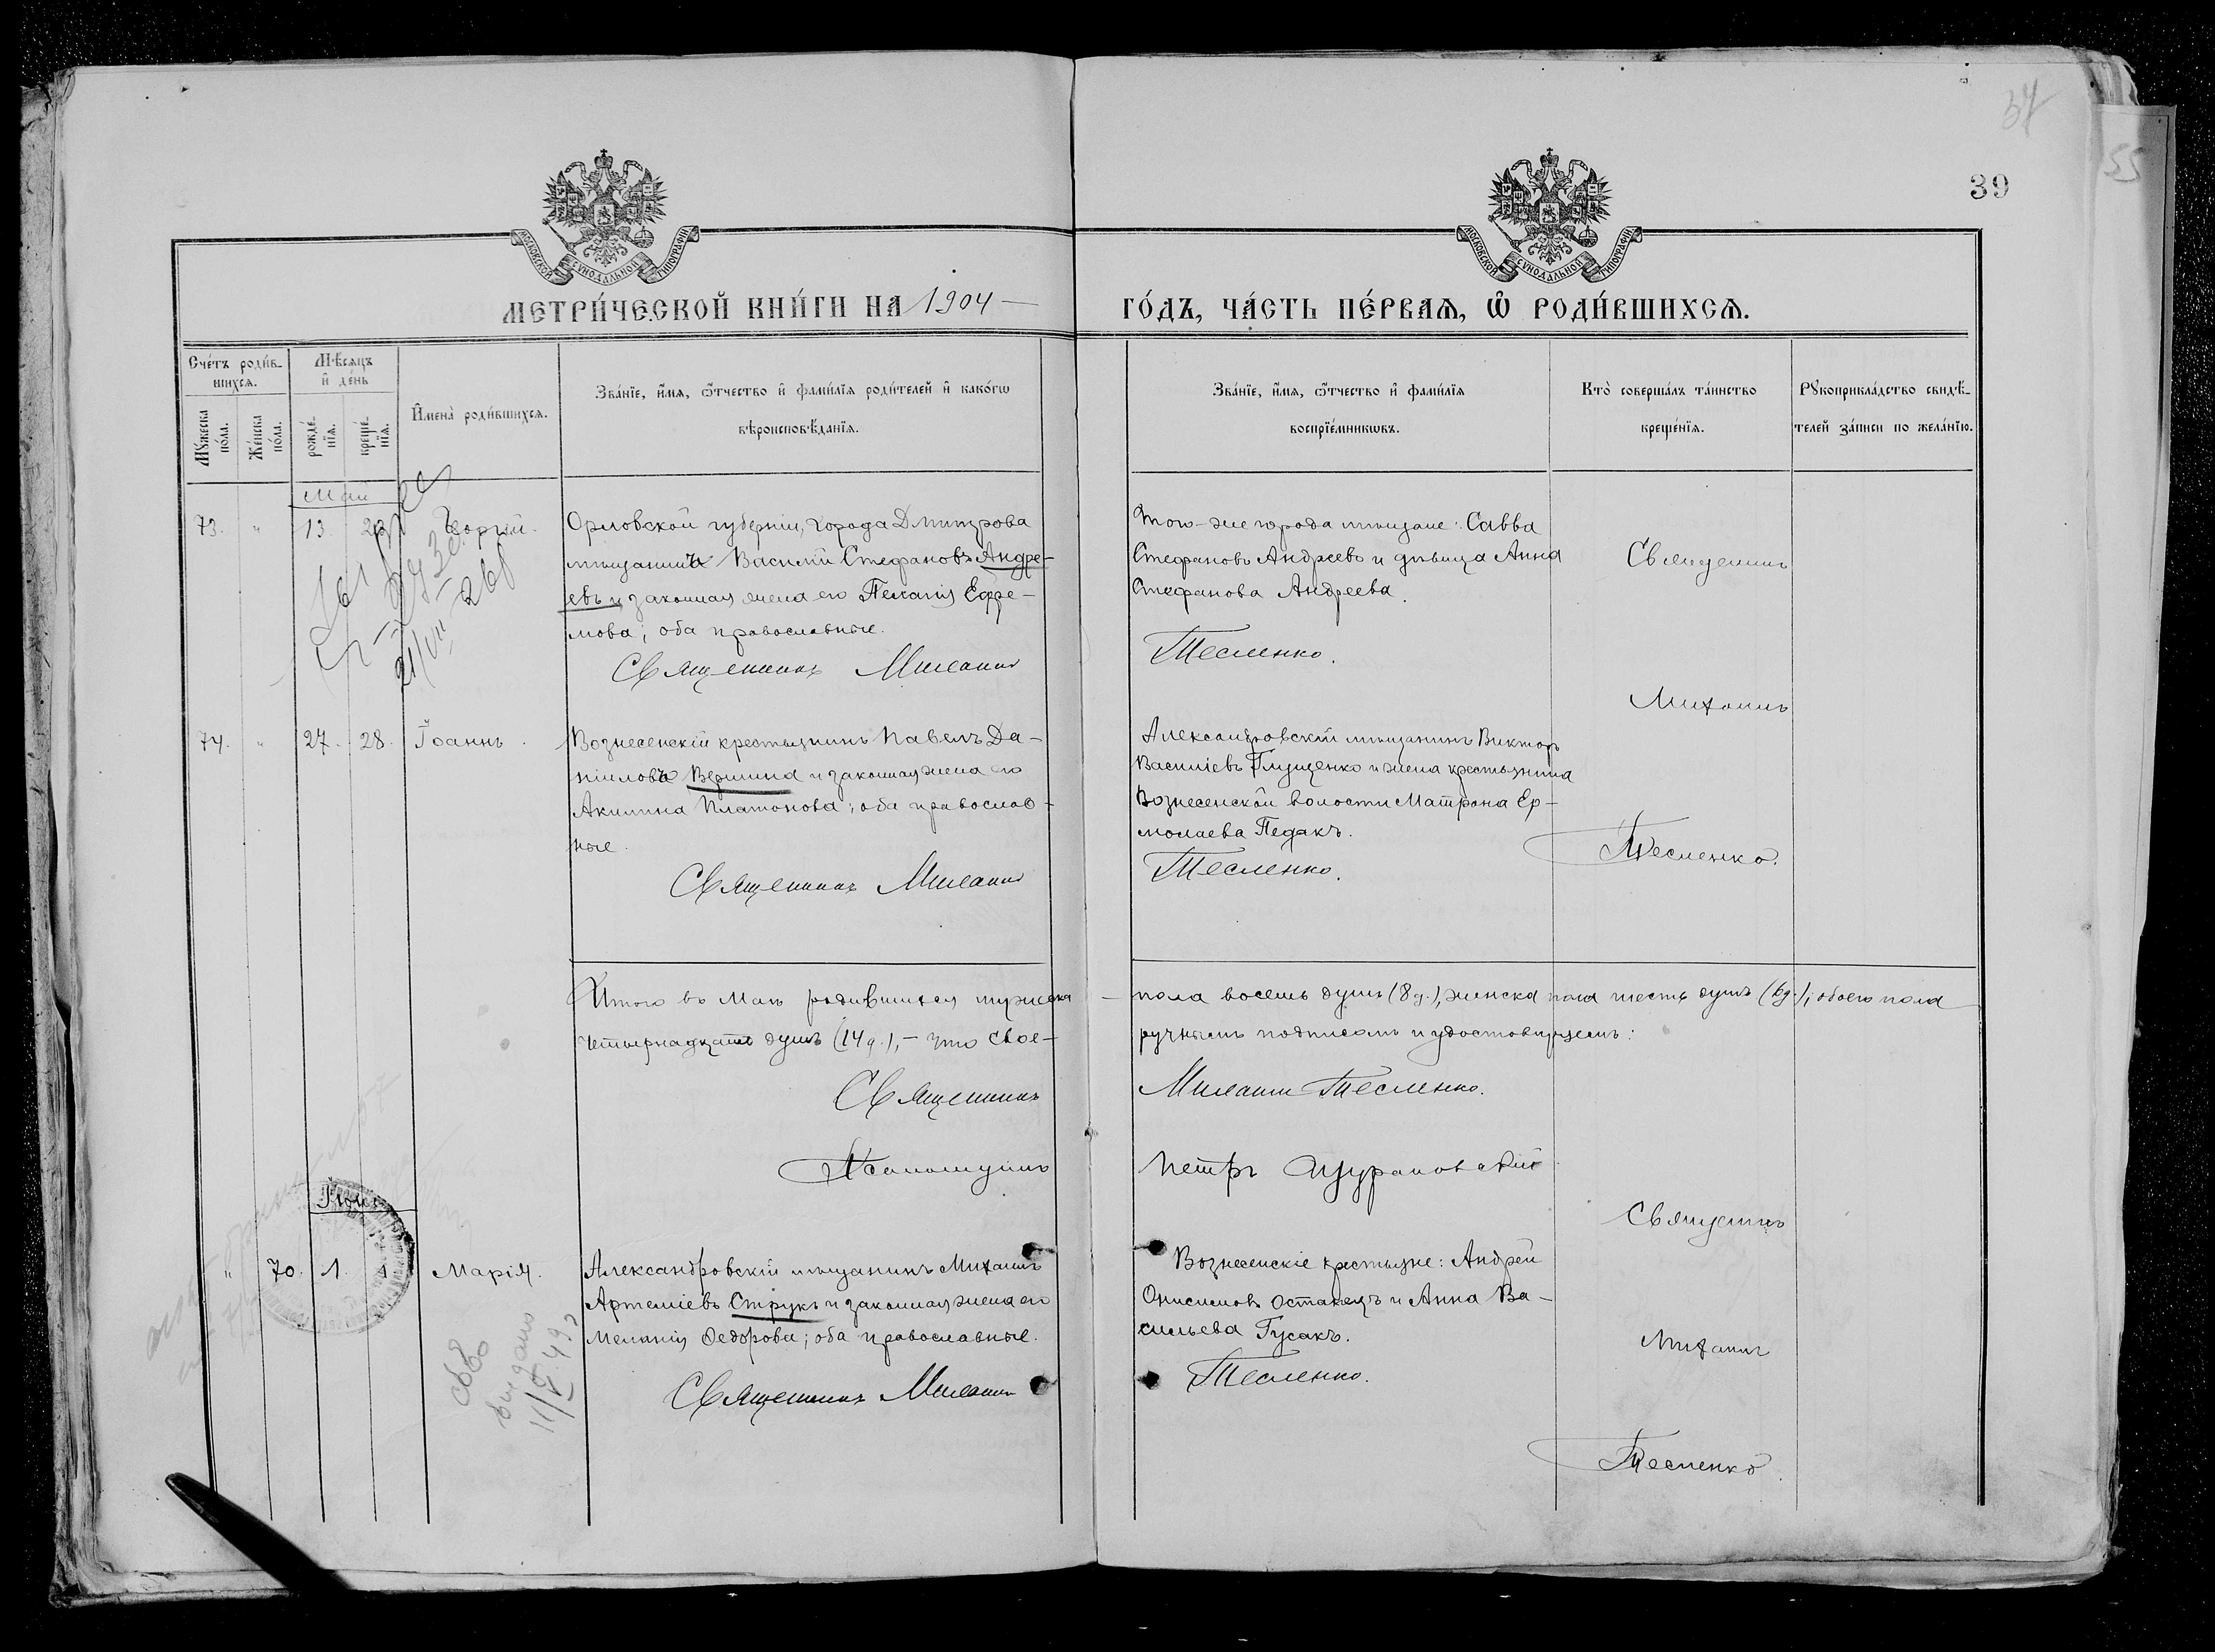 37
55
39
МОСКОВСКОЙ СѴНОДАЛЬНОЙ ТИПОГРАФІИ
МОСКОВСКОЙ СѴНОДАЛЬНОЙ ТИПОГРАФІИ
МЕТРИ́ЧЕСКОЙ КНИ́ГИ НА 1904 ГО́ДЪ, ЧА́СТЬ ПЕ́РВАѦ, Ѽ РОДИ́ВШИХСѦ.
Сче́тъ роди́в-
шихсѧ.
Мꙋ́жеска по́ла.
Же́нска по́ла.
Мѣ́сѧцъ и҆ де́нь
рожде́-нїѧ.
креще́-нїѧ.
И҆мена̀ роди́вшихсѧ.
Зва́нїе, и҆́мѧ, ѻ҆́тчество и҆ фами́лїѧ роди́телей и҆ како́гѡ
вѣроисповѣ́данїѧ.
Зва́нїе, и҆́мѧ, ѻ҆́тчество и҆ фами́лїѧ
воспрїе́мникѡвъ.
Кто̀ соверша́лъ та́инство
креще́нїѧ.
Рꙋкоприкла́дство свидѣ́-
телей за́писи по жела́нїю.
Май
73. " 13 23 Георгій.
Орловской губерніи, города Дмитрова
мѣщанинъ Василій Стефановъ Андре-
евъ и законная жена его Пелагія Ефре-
мова; оба православные.
Священникъ Михаилъ
Того-же города мѣщане: Савва
Стефановъ Андреевъ и дѣвица Анна
Стефанова Андреева.
Тесленко.
Священникъ
Михаилъ
Тесленко.
21/VII
74. " 27. 28. Іоаннъ.
Вознесенскій крестьянинъ Павелъ Да-
ніиловъ Вершина и законная жена его
Акилина Платонова; оба православ-
ные.
Священникъ Михаилъ
Александровскій мѣщанинъ Викторъ
Василіевъ Глущенко и жена крестьянина
Вознесенской волости Матрона Ер-
молаева Педакъ.
Тесленко.
Итого въ Маѣ родившихся мужеска пола восемь душъ (8 д.), женска пола шесть душъ (6 д.); обоего пола
четырнадцать душъ (14 д.), - что свое- ручнымъ подписомъ и удостовѣряемъ:
Священникъ Михаилъ Тесленко.
Псаломщикъ Петръ
Іюнь
" 70. 1. 1. Марія.
Александровскій мѣщанинъ Михаилъ
Артеміевъ Струкъ и законная жена его
Меланія Ѳедорова; оба православные.
Священникъ Михаилъ
Вознесенскіе крестьяне: Андрей
Онисимовъ Остапецъ и Анна Ва-
сильева Гусакъ.
Тесленко.
Священникъ
Михаилъ
Тесленко
выдано